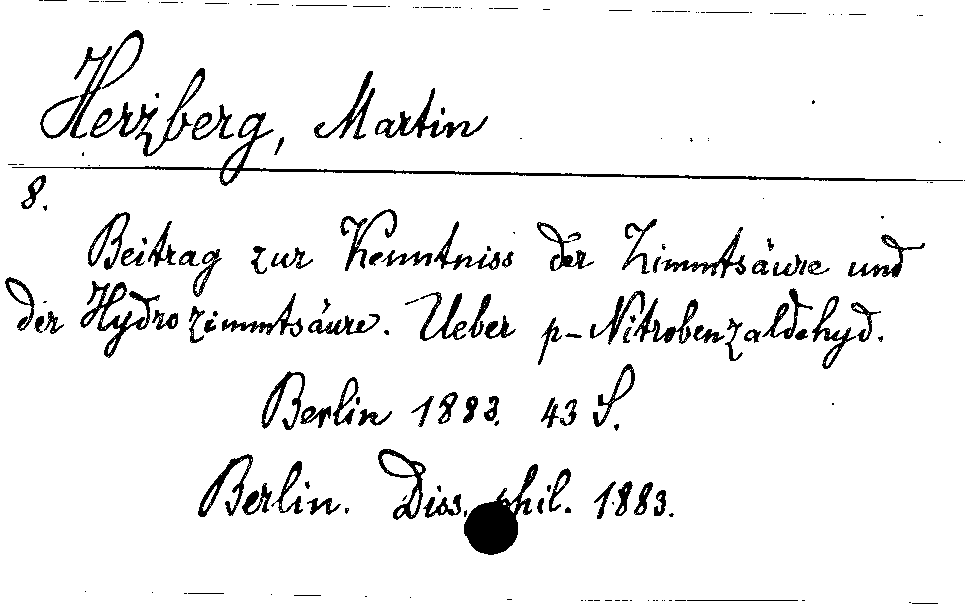 Herzberg, Martin
8.
Beitrag zur Kenntniss der Zimmtsäure und
der Hydrozimmtsäure. Ueber p-Nitrobenzaldehyd.
Berlin 1883. 43 S.
Berlin. Diss. phil. 1883.